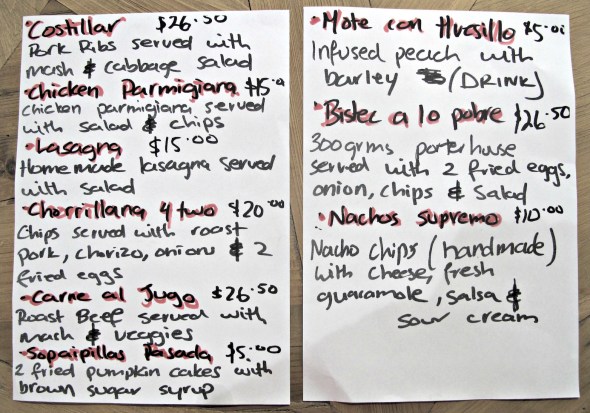 •Costillar $26.50
Pork Ribs served with
mash & cabbage salad
•Chicken Parmigiara $15.0
chicken parmigiara served
with salad & chips
•Lasagna $15.00
Homemade lasagna served
with salad
•Chorrillana 4 two $20.00
Chips served with roast
pork, chorizo, onions & 2
fried eggs
•Carne al Jugo $26.50
Roast Beef served with
mash & veggies
•Sopaipillas Pasada $5.00
2 fried pumpkin cakes with
brown sugar syrup
•Mote con Huesillo $5.00
Infused peach with
barley (DRINK)
•Bistec a lo pobre $26.50
300grms porterhouse
served with 2 fried eggs,
onion, chips & Salad
•Nachos supremo $10.00
Nacho Chips (handmade)
with cheese, fresh
guacamole, salsa &
sour cream